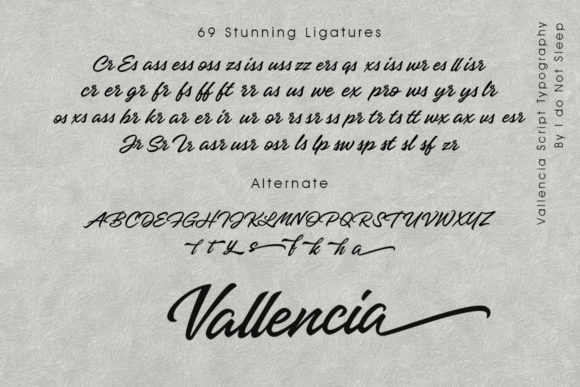 69 Stunning Ligatures
Cr Es ass ess oss zs iss uss zz ers qs xs iss wr es ll isr
cr er gr fr fs ff ft rr as us we ex pro ws yr ys lr
os xs ass br kr ar er ir ur or rs sr ss pr tr ts tt wx ax us esr
Jr Sr Ir asr usr osr ls lp sw sp st sl sf zr
Alternate
ABCDEFGHIJKLMNOPQRSTUVWXYZ
t t y s f k h a
Vallencia
Vallencia Script Typography
By I do Not Sleep